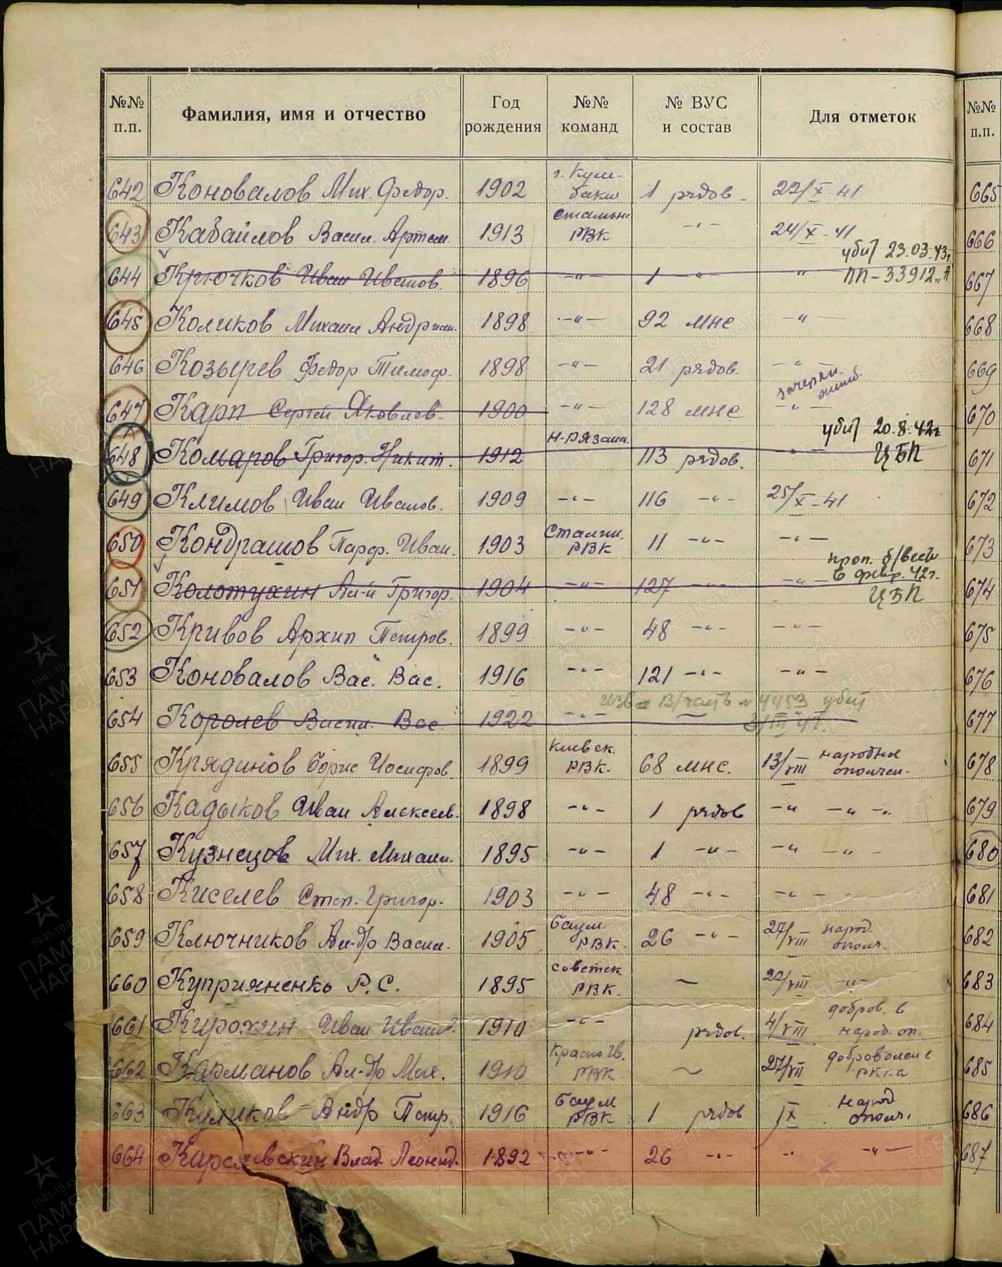 №№ п.п. Фамилия, имя и отчество Год рождения №№ команд № ВУС и состав Для отметок №№ п.п.
642 Коновалов Мих. Федор. 1902 1 рядов. 22/X-41 665
643 Кабайлов Васил. Артем. 1913 РВК -"- 24/X-41 666
убит 23.03.43г.
644 Крючков Иван Иванов. 1896 -"- 1 -"- " ПП-33912 "А" 667
645 Коликов Михаил 1898 -"- 92 мнс -" 668
646 Козырев Федор Тимоф. 1898 -"- 21 рядов. -"- 669
зачеркн. ошиб.
647 Карп Сергей Яковлев. 1900 -"- 128 мнс -"- 670
убит 20.8.42г
648 Комаров Григор. Никит. 1912 Н-Рязан. 113 рядов. ЦБП 671
649 Климов Иван Иванов. 1909 -"- 116 -"- 25/X-41 672
650 Кондрашов Парф. Иван. 1903 РВК 11 -"- -"- 673
проп. б/вести
в февр. 42г.
651 Колотухин Ал-й Григор. 1904 -"- 127 -"- -"- ЦБП 674
652 Кривов Архип Петров. 1899 -"- 48 -"- -"- 675
653 Коновалов Вас. Вас. 1916 -"- 121 -"- -"- 676
изв В/часть № 4453 убит
654 Королев Васил. Вас. 1922 -"- 677
655 Крядинов Борис Иосифов. 1899 Киевск. РВК. 68 мнс. 13/VIII народное ополчен. 678
656 Кадыков Иван Алексеев. 1898 -"- 1 рядов -" -"- 679
657 Кузнецов Мих. Михаил. 1895 -"- 1 -"- -" -"- 680
658 Киселев Степ. Григор. 1903 -"- 48 -"- -"- 681
659 Ключников Ал-др Васил. 1905 Баум. РВК. 26 -"- 27/VIII народ. ополч. 682
660 Куприяненко Р.С. 1895 советск. РВК. 22/VIII -"- 683
661 Кирохин Иван Иванов. 1910 -"- рядов. 4/VIII добров. в народ. оп. 684
662 Карманов Ал-др Мих. 1910 Красногв. РВК 27/VII РККА 685
663 Куликов Андр Петр. 1916 Баум РВК 1 рядов IX народ ополч. 686
664 Карславский Влад. Леонид. 1892 -"- 26 -"- -"- -"- 687
ПАМЯТЬ НАРОДА
1941-1945